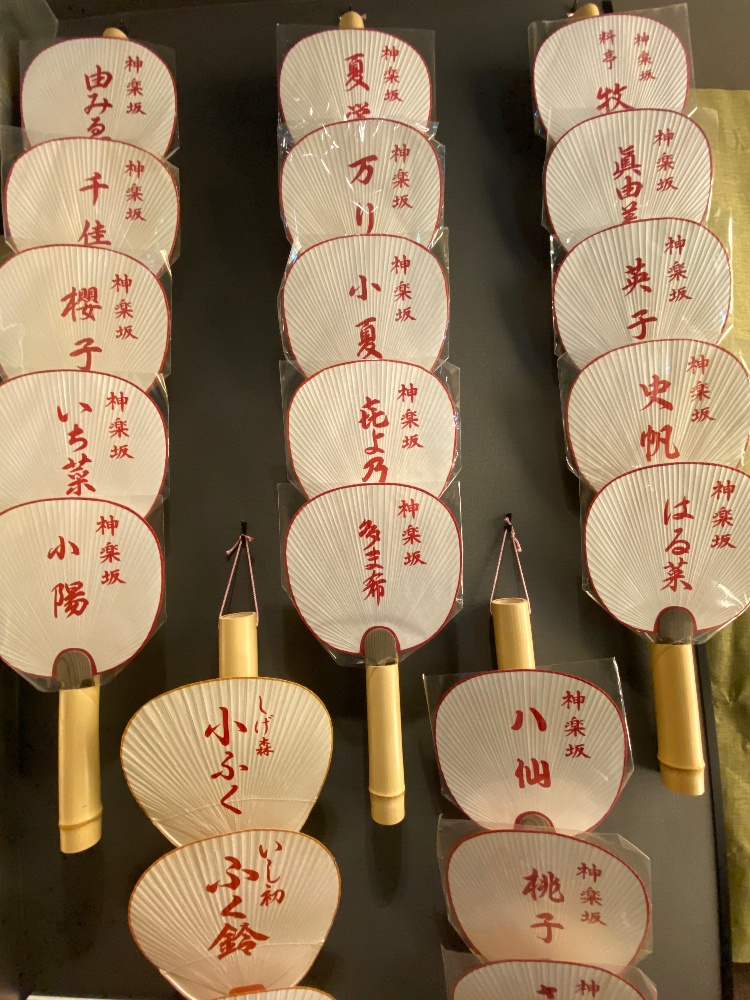 神楽坂
由みゑ
神楽坂
千佳
神楽坂
櫻子
神楽坂
いち菜
神楽坂
小陽
神楽坂
夏栄
神楽坂
万り
神楽坂
小夏
神楽坂
㐂よ乃
神楽坂
多主希
神楽坂
料亭
牧
神楽坂
眞由美
神楽坂
英子
神楽坂
史帆
神楽坂
はる菜
しげ森
小ふく
いし初
ふく鈴
神楽坂
八仙
神楽坂
桃子
神